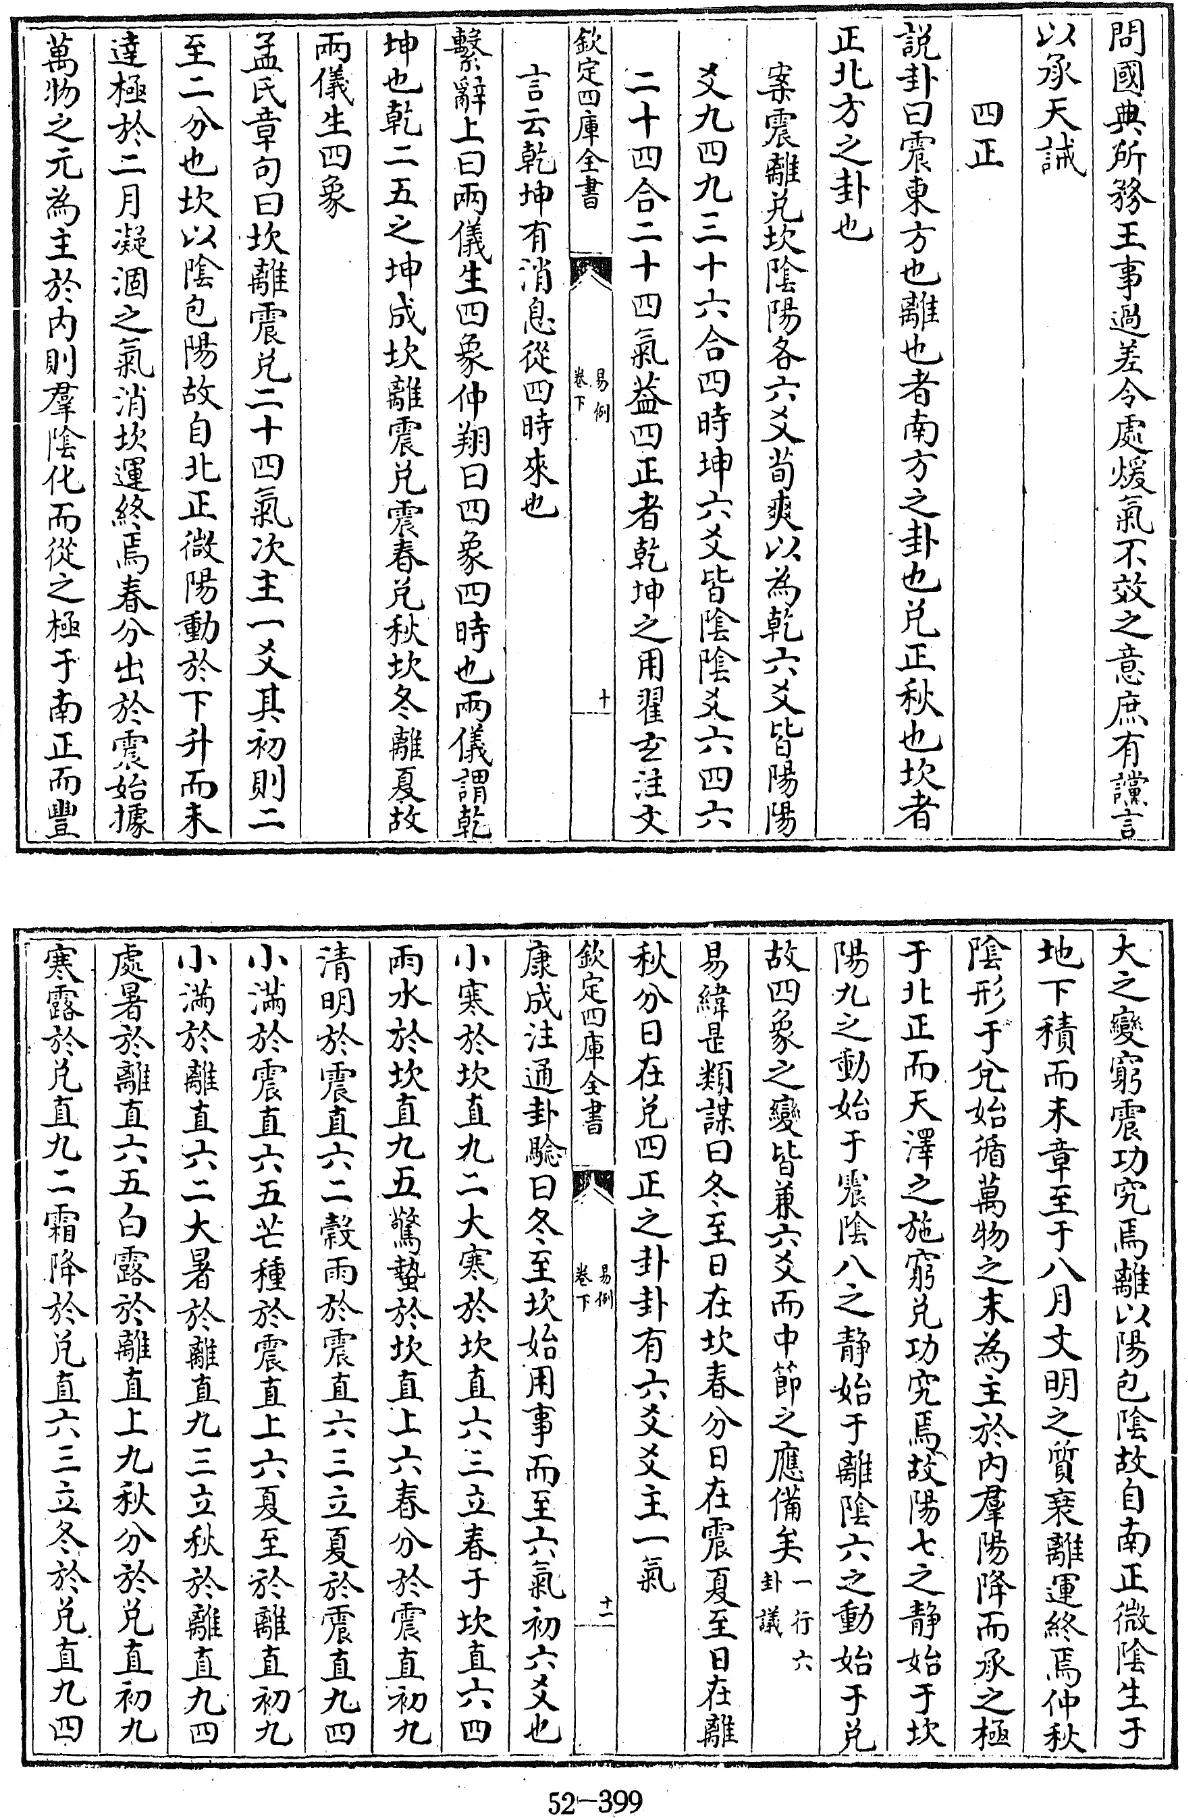 問國典所務王事過差令處煖氣不效之意庶有讜言
以承天誡
四正
説卦曰震東方也離也者南方之卦也兌正秋也坎者
正北方之卦也
案震離兌坎陰陽各六爻荀爽以為乾六爻皆陽陽
爻九四九三十六合四時坤六爻皆陰陰爻六四六
二十四合二十四氣葢四正者乾坤之用翟玄注文
欽定四庫全書
易例
卷下
十
言云乾坤有消息從四時來也
繫辭上曰兩儀生四象仲翔曰四象四時也兩儀謂乾
坤也乾二五之坤成坎離震兌震春兌秋坎冬離夏故
兩儀生四象
孟氏章句曰坎離震兌二十四氣次主一爻其初則二
至二分也坎以陰包陽故自北正微陽動於下升而未
達極於二月凝涸之氣消坎運終焉春分出於震始據
萬物之元為主於内則羣陰化而從之極于南正而豐
大之變窮震功究焉離以陽包陰故自南正微陰生于
地下積而未章至于八月文明之質衰離運終焉仲秋
陰形于兌始循萬物之末為主於内羣陽降而承之極
于北正而天澤之施窮兌功究焉故陽七之静始于坎
陽九之動始于震陰八之静始于離陰六之動始于兌
故四象之變皆兼六爻而中節之應備矣一行六卦議
易緯是類謀曰冬至日在坎春分日在震夏至日在離
秋分日在兌四正之卦卦有六爻爻主一氣
欽定四庫全書
易例
卷下
十一
康成注通卦驗曰冬至坎始用事而至六氣初六爻也
小寒於坎直九二大寒於坎直六三立春于坎直六四
雨水於坎直九五驚蟄於坎直上六春分於震直初九
清明於震直六二穀雨於震直六三立夏於震直九四
小滿於震直六五芒種於震直上六夏至於離直初九
小滿於離直六二大暑於離直九三立秋於離直九四
處暑於離直六五白露於離直上九秋分於兌直初九
寒露於兌直九二霜降於兌直六三立冬於兌直九四
52-399